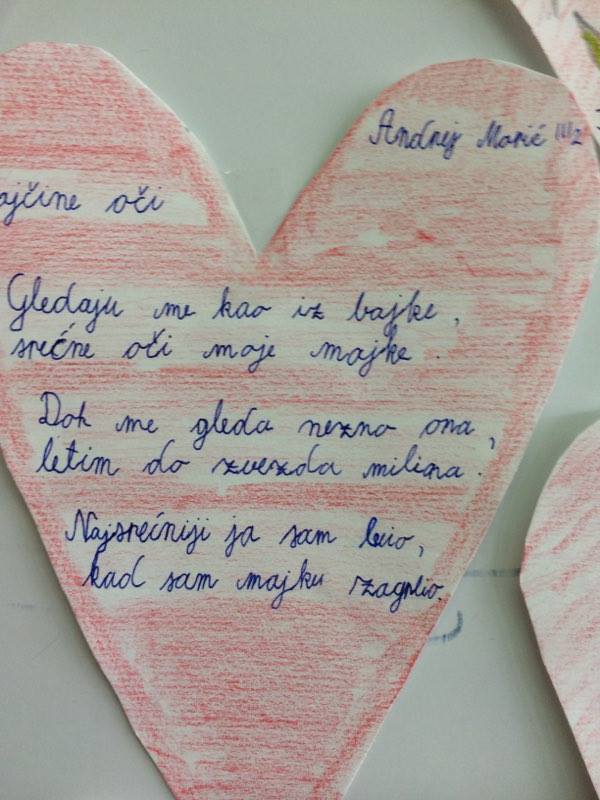 Andrej Marić III/2
ajčine oči
Gledaju me kao iz bajke,
srećne oči moje majke.
Dok me gleda nezno ona,
letim do zvezda miliona.
Najsrećniji ja sam bio,
kad sam majku zagrlio.